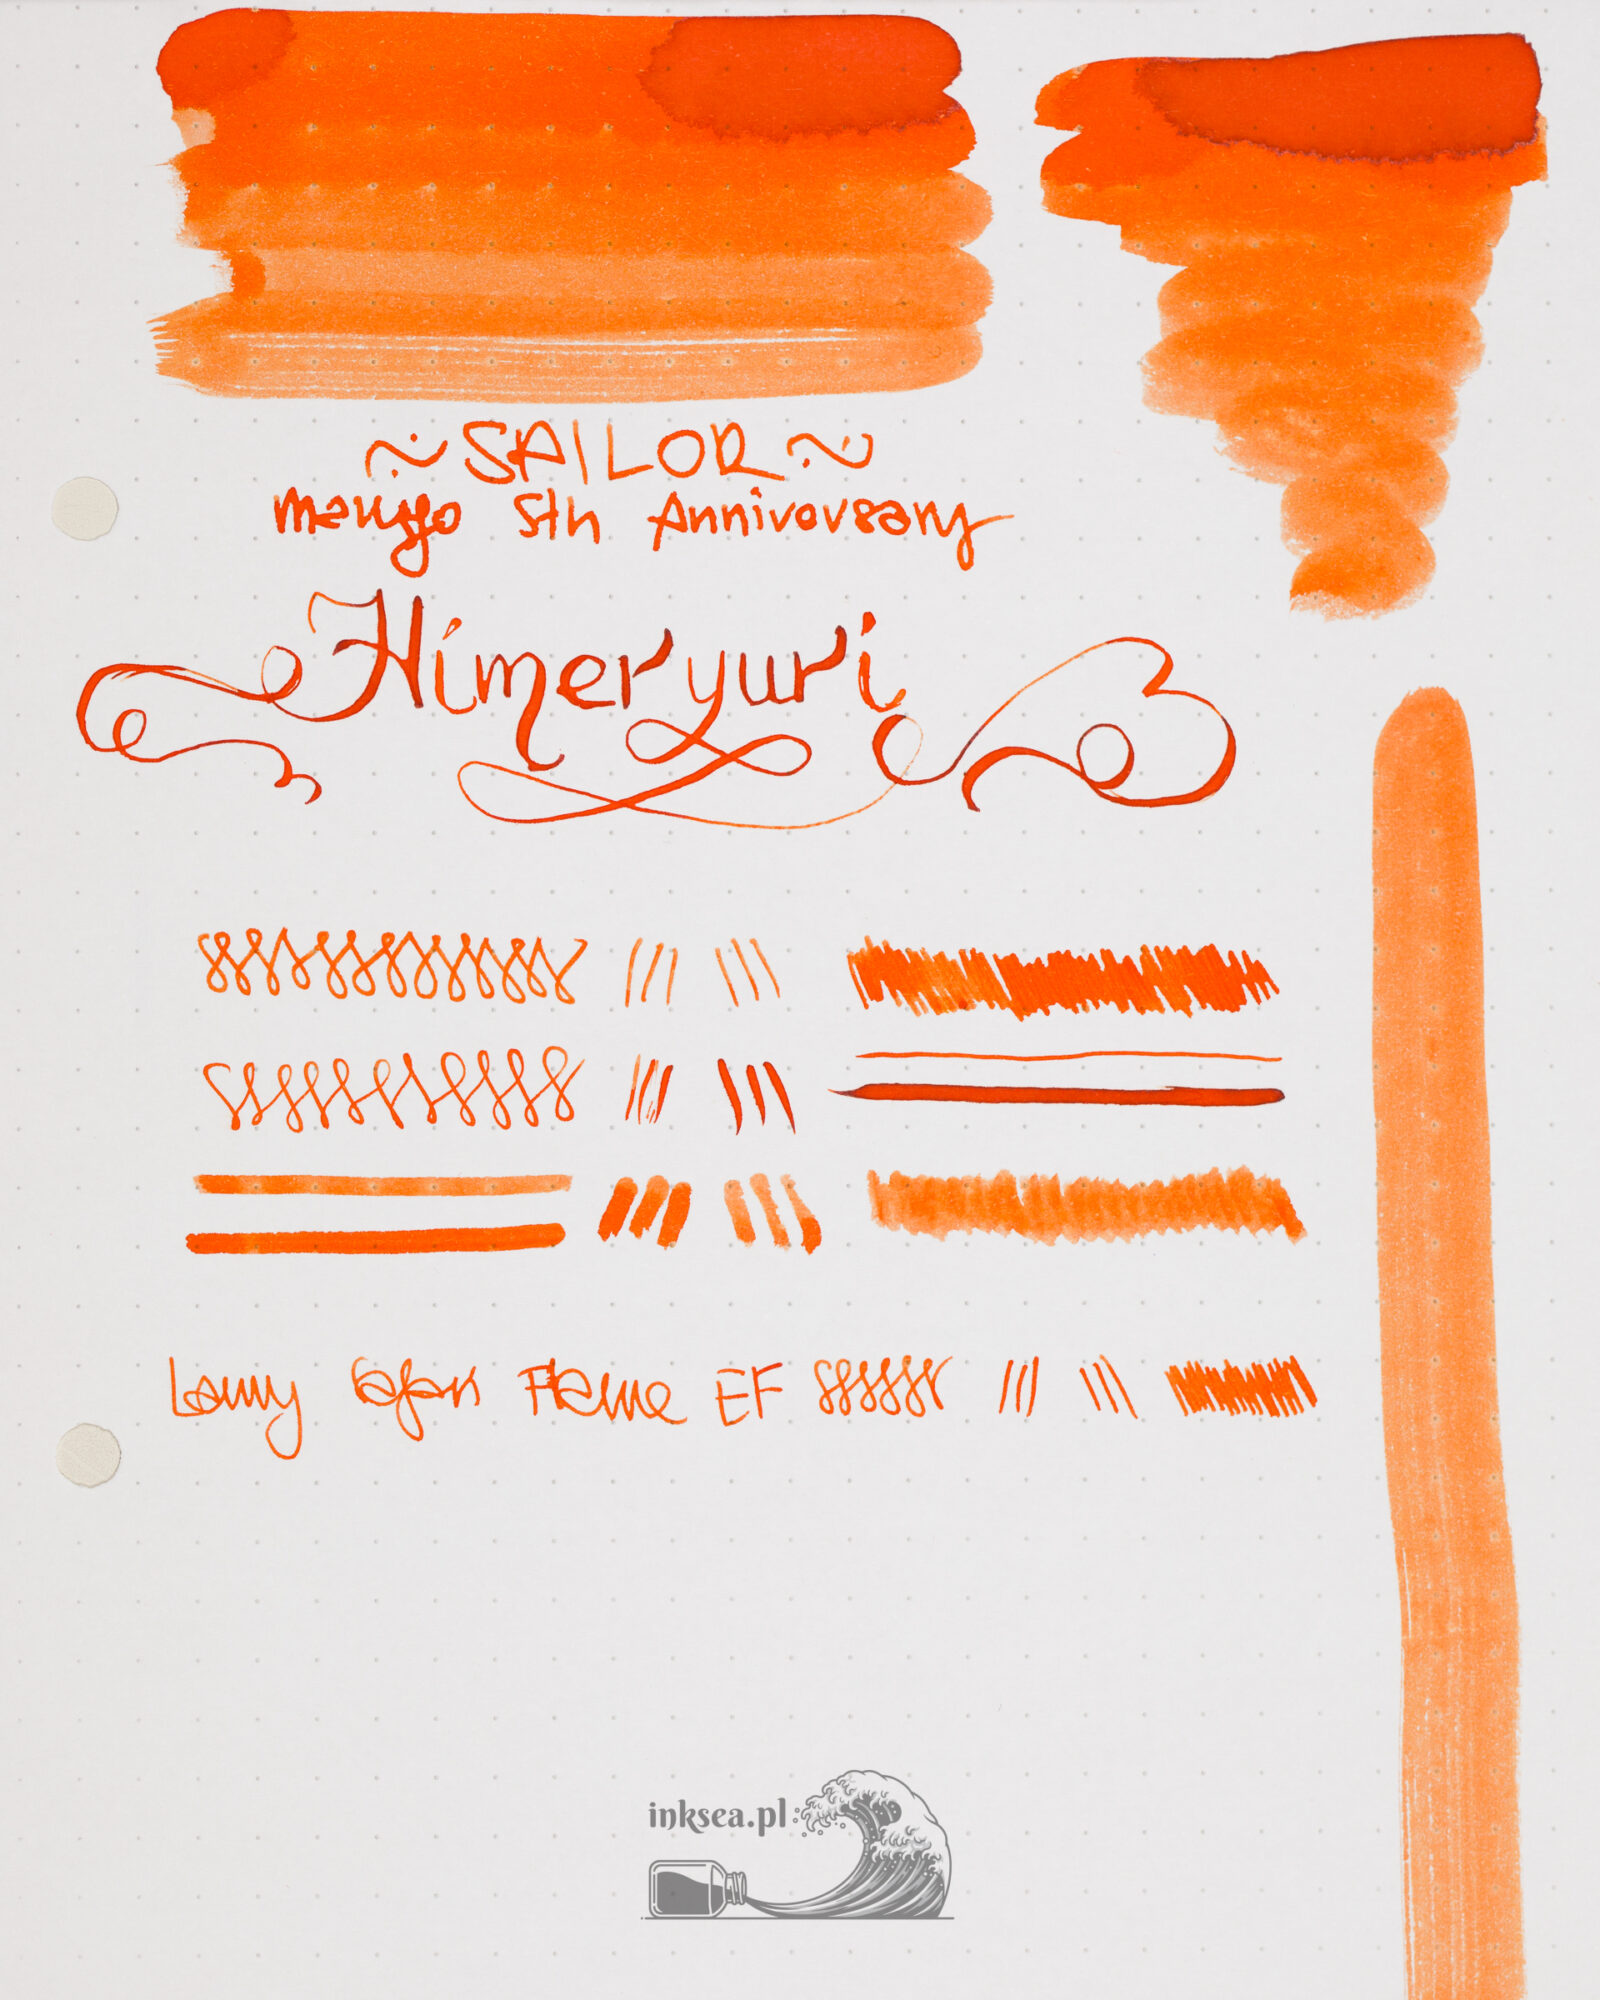 ~SAILOR~
Manyo 5th Anniversary
Himeryuri
Lamy Safari Flame EF
inksea.pl